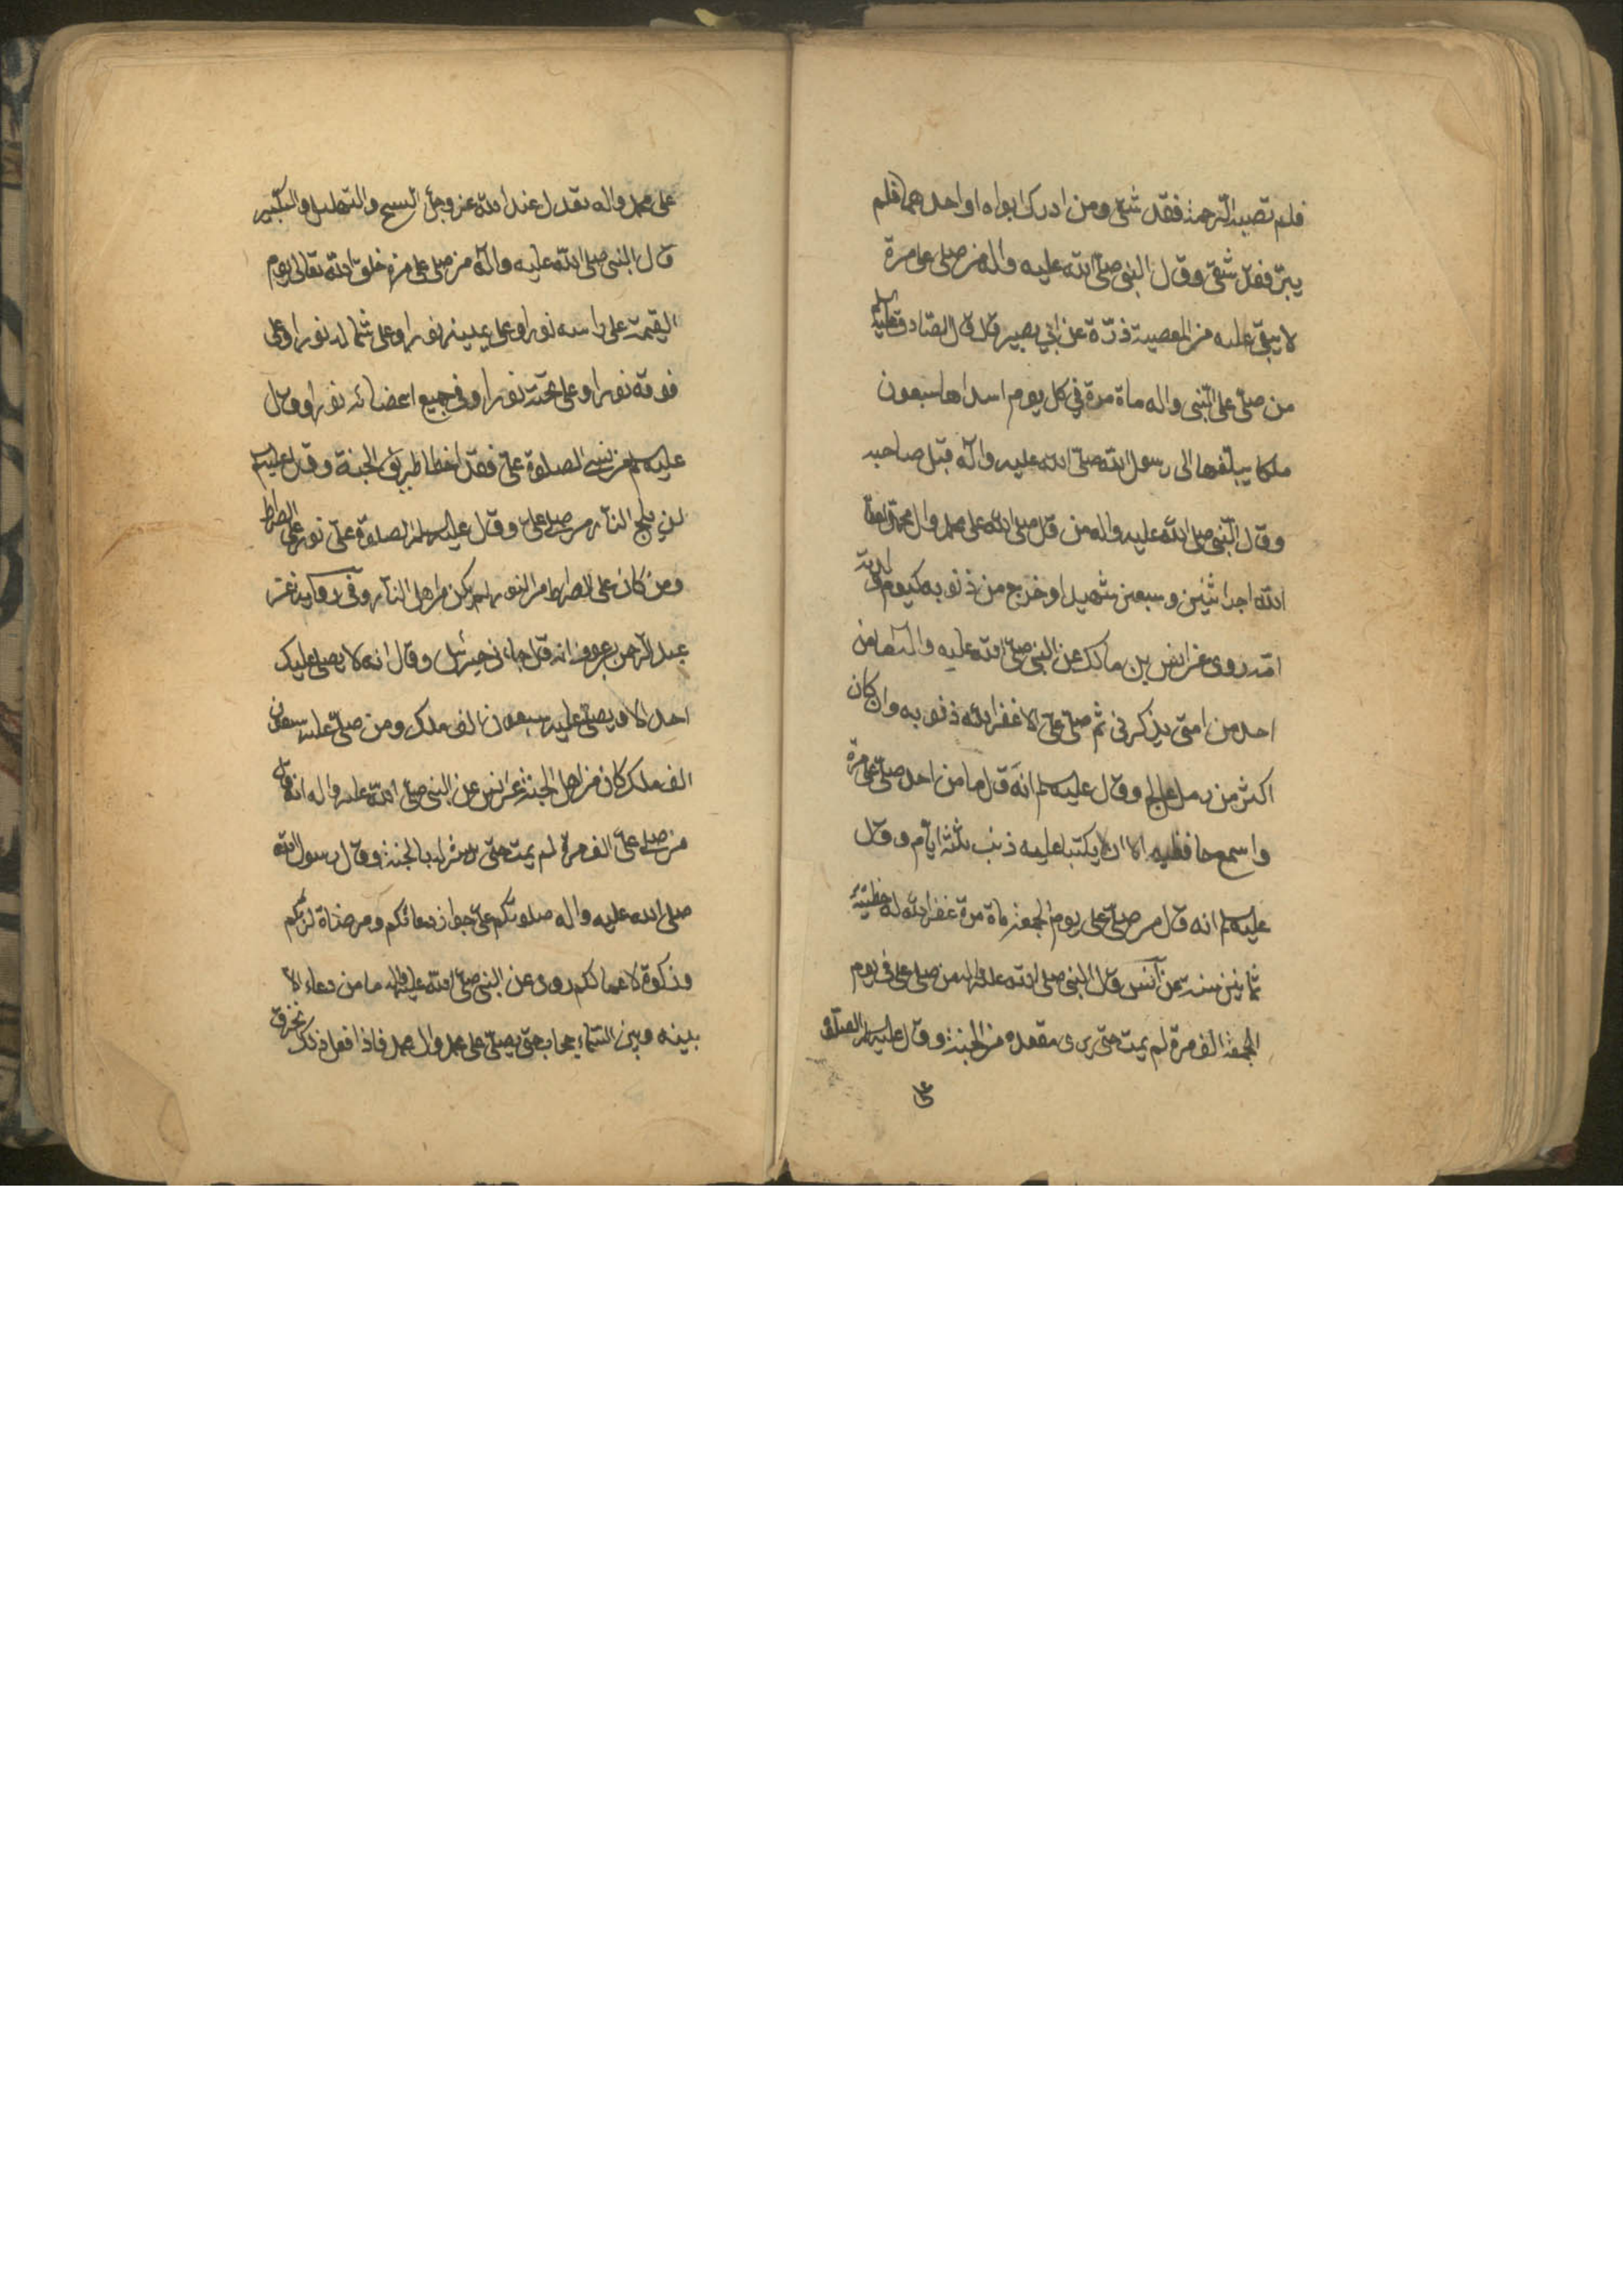 فلم تصبه الرحمة فقد شقى ومن ادرك ابواه او احدهما فلم
يبرّ فقد شقى وقال النبى صلّى الله عليه واله من صلى على مرة
لا يبقى عليه من المعصية ذرّة عن ابي بصير قال قال الصّادق عليه السلم
من صلّى على النّبى واله ماة مرة في كل يوم اسداها سبعون
ملكا يبلّغها الى رسول الله صلّى الله عليه واله قبل صاحبه
وقال النّبى صلى الله عليه واله من قال صلى الله على محمد وال محمد اعطاه
الله اجر اثنين وسبعين شهيدا وخرج من ذنوبه كيوم ولدته
امّه روى عن انس بن مالك عن النبى صلّى الله عليه واله ما من
احد من امتى يذكرنى ثم صلّى علىّ الا غفر الله ذنوبه وان كان
اكثر من رمل عالج وقال عليه السلم انّه قال ما من احد صلّى علىّ مرة
واسمع حافظيه الا ان لا يكتبا عليه ذنب ثلثة ايام وقال
عليه السلم انه قال من صلّى على يوم الجمعة ماة مرة غفر الله له خطيئة
ثمانين سنة عن انس قال النبى صلى الله عليه واله من صلى على فى يوم
الجمعة الف مرة لم يمت حتى يرى مقعده من الجنة وقال عليه السلم الصلوة
على محمد واله تعدل عند الله عز وجل التسبيح والتهليل والتكبير
قال النبى صلى الله عليه واله من صلى على مرة خلق الله تعالى يوم
القيمة على راسه نورا وعلى يمينه نورا وعلى شماله نورا وعلى
فوقه نورا وعلى تحته نورا وفى جميع اعضائه نورا وقال
عليه السلم من نسى الصلوة علىّ فقد اخطا طريق الجنة وقال عليه السلم
لن يلج النار من صلى علىّ وقال عليه السلم الصلوة علىّ نور على الصراط
ومن كان على الصراط من النور لم يكن من اهل النار وفى رواية عن
عبد الرحمن بن عوف انه قال جاءنى جبرئيل وقال انه لا يصلى عليك
احد الا ويصلّى عليه سبعون الف ملك ومن صلّى عليه سبعون
الف ملك كان من اهل الجنة عن انس عن النبى صلى الله عليه واله انه قال
من صلى علىّ الف مرة لم يمت حتى يبشر له بالجنة وقال رسول الله
صلى الله عليه واله صلوتكم علىّ جواز دعائكم ومرضاة لربّكم
وزكوة لاعمالكم روى عن النبى صلى الله عليه واله ما من دعاء الا
بينه وبين السّماء حجاب حتى يصلّى على محمد وال محمد فاذا فعل ذلك انخرق